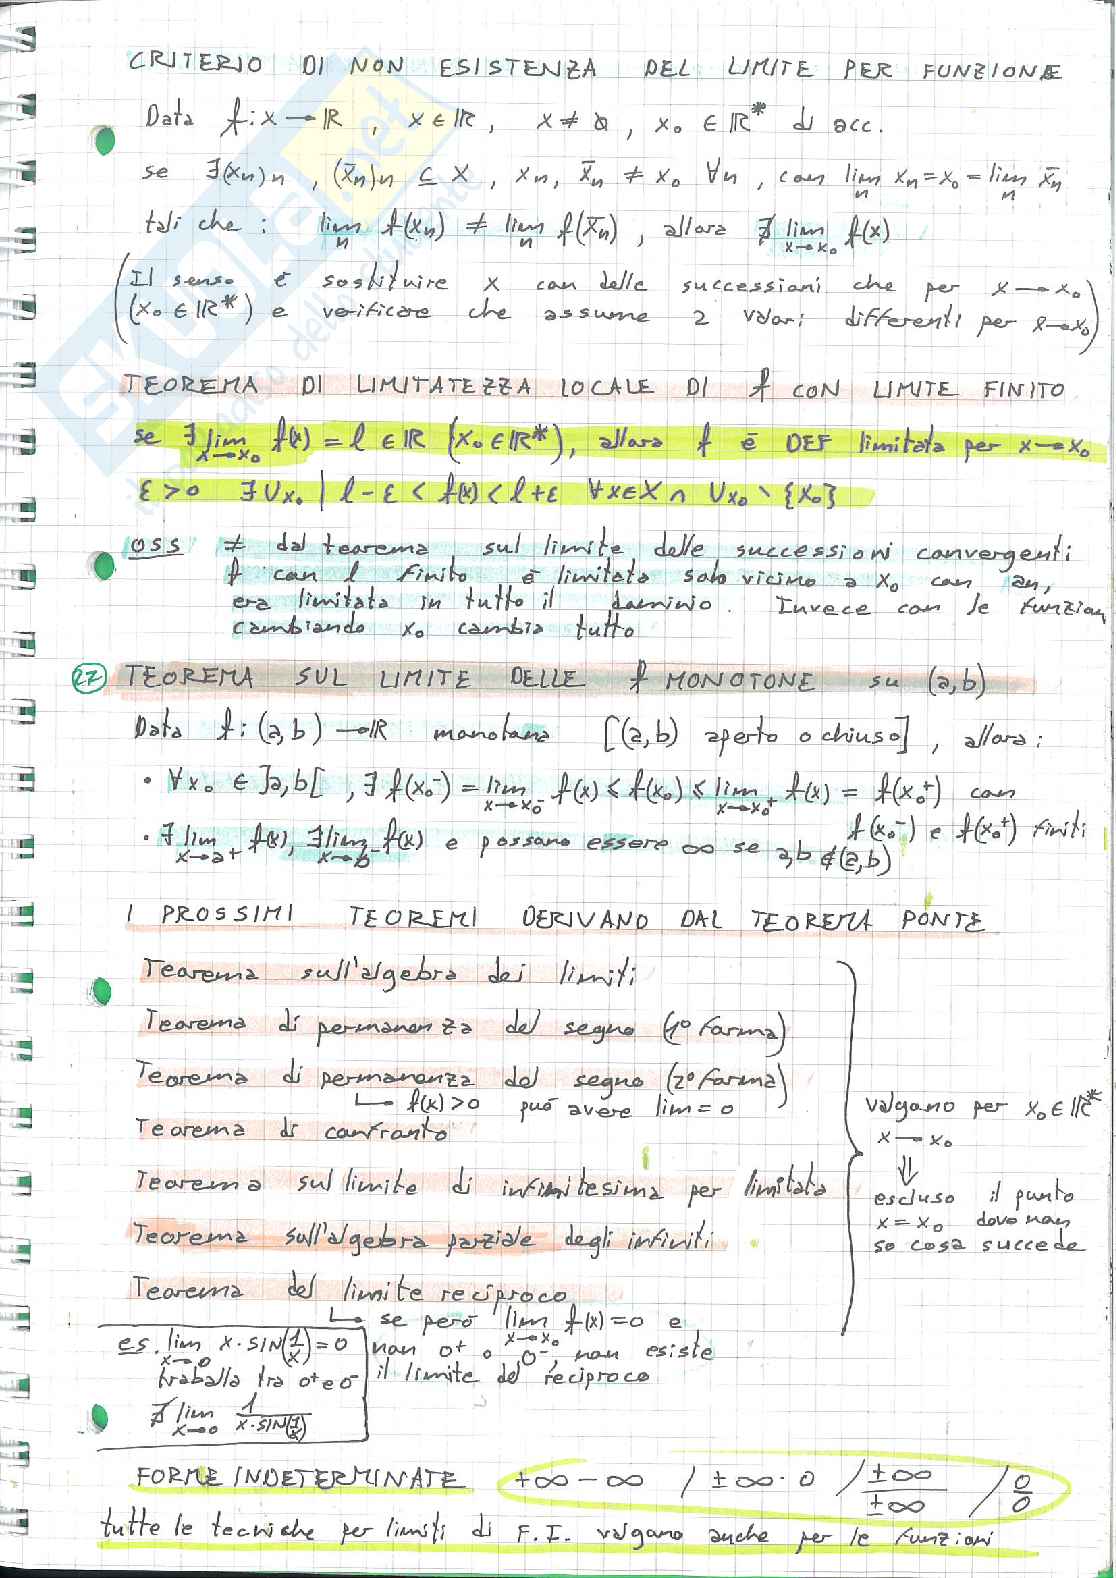 CRITERIO DI NON ESISTENZA DEL LIMITE PER FUNZIONE
Data f: X → ℝ , X ∈ ℝ, X ≠ ∅ , x₀ ∈ ℝ* di acc.
se ∃(xₙ)ₙ , (x̄ₙ)ₙ ⊆ X , xₙ, x̄ₙ ≠ x₀ ∀n , con lim_n xₙ = x₀ = lim_n x̄ₙ
tali che : lim_n f(xₙ) ≠ lim_n f(x̄ₙ) , allora ∄ lim_{x→x₀} f(x)
(Il senso è sostituire x con delle successioni che per x → x₀
(x₀ ∈ ℝ*) e verificare che assume 2 valori differenti per x→x₀)
TEOREMA DI LIMITATEZZA LOCALE DI f CON LIMITE FINITO
se ∃ lim_{x→x₀} f(x) = l ∈ ℝ (x₀ ∈ ℝ*), allora f è DEF limitata per x→x₀
ε>0 ∃ Ux₀ | l-ε < f(x) < l+ε ∀x∈X ∩ Ux₀ \ {x₀}
OSS ≠ dal teorema sul limite delle successioni convergenti
f con l finito è limitata solo vicino a x₀ con an,
era limitata in tutto il dominio. Invece con le funzioni
cambiando x₀ cambia tutto
27 TEOREMA SUL LIMITE DELLE f MONOTONE su (a,b)
Data f: (a,b) → ℝ monotona [(a,b) aperto o chiuso] , allora:
• ∀x₀ ∈ ]a,b[ , ∃ f(x₀⁻) = lim_{x→x₀⁻} f(x) ≤ f(x₀) ≤ lim_{x→x₀⁺} f(x) = f(x₀⁺) con
f(x₀⁻) e f(x₀⁺) finiti
• ∃ lim_{x→a⁺} f(x), ∃ lim_{x→b⁻} f(x) e possono essere ∞ se a,b ∉ (a,b)
I PROSSIMI TEOREMI DERIVANO DAL TEOREMA PONTE
Teorema sull'algebra dei limiti
Teorema di permanenza del segno (1° forma)
Teorema di permanenza del segno (2° forma)
↳ f(x)>0 può avere lim = 0
Teorema di confronto
Teorema sul limite di infinitesima per limitata
Teorema sull'algebra parziale degli infiniti
Teorema del limite reciproco
↳ se però lim_{x→x₀} f(x)=0 e
non 0⁺ o 0⁻, non esiste
il limite del reciproco
valgono per x₀ ∈ ℝ*
x → x₀
⇓
escluso il punto
x = x₀ dove non
so cosa succede
es. lim_{x→0} x·SIN(1/x)=0
traballa tra 0⁺ e 0⁻
∄ lim_{x→0} 1/(x·SIN(1/x))
FORME INDETERMINATE +∞ - ∞ / ±∞ · 0 / ±∞/±∞ / 0/0
tutte le tecniche per limiti di F.I. valgono anche per le funzioni